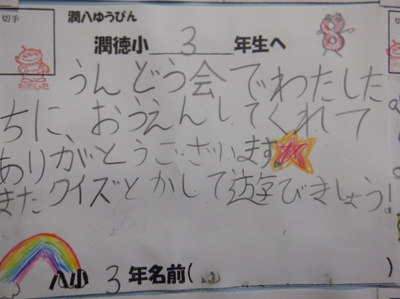 切手
潤八ゆうびん
潤徳小 3 年生へ
うんどう会でわたした
ちに、おうえんしてくれて
ありがとうございます
またクイズとかして遊びましょう!
八小 3 年名前( )